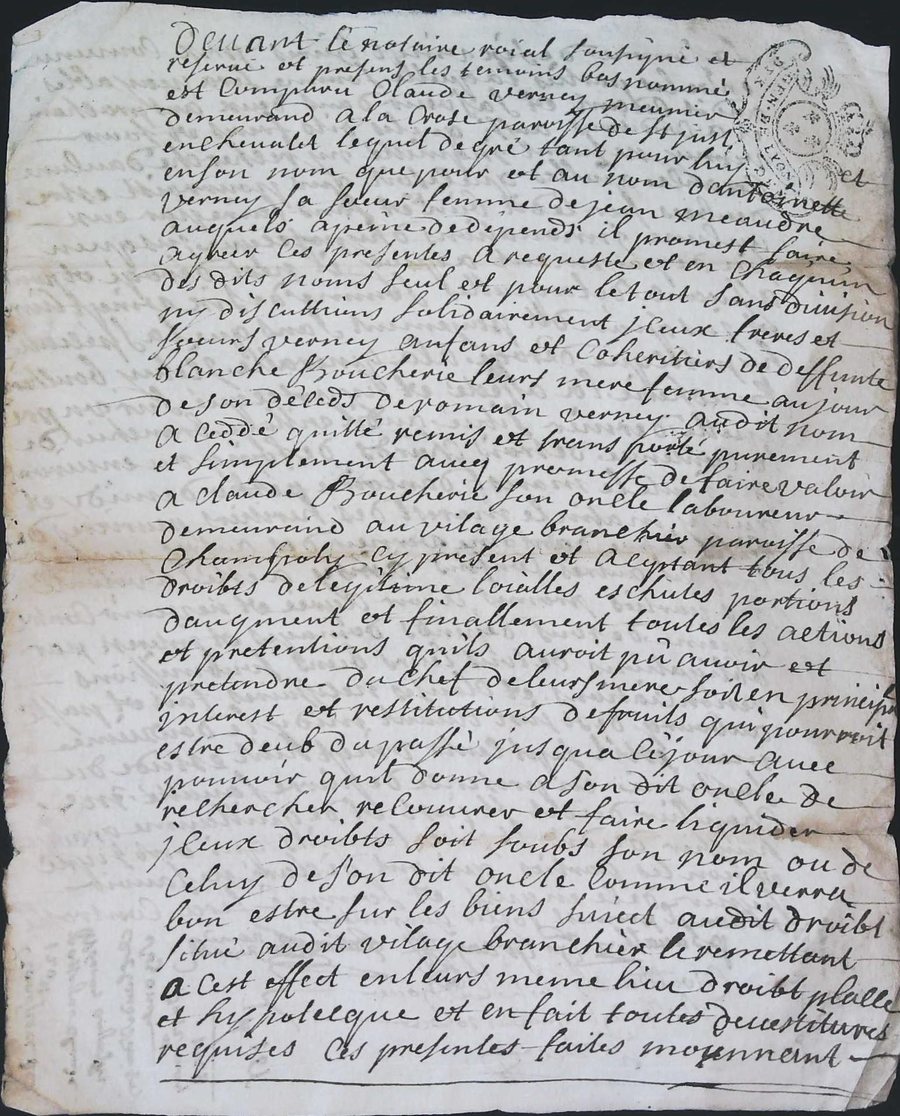 Devant le notaire roial sousigné et
reservé et presens les temoins bas nommé
est Comparu Claude verney meunier
demeurand a la Crose paroisse de st just
en Chevalet lequel de gré tant pour luy et
en son nom que pour et au nom dantoinette
verney sa sœur femme de jean meaudre
auquels a peine de dépends il promest faire
agreer Ces presentes a requeste et en Chaqu'un
des dits noms seul et pour le tout sans division
ny discuttions solidairement jceux freres et
sœurs verney enfans et Coheritiers de deffunte
blanche Boucherie leurs mere femme au jour
de son déceds de romain verney audit nom
a Ceddé quitté remis et transporté purement
et simplement aveq promesse de faire valoir
a Claude Boucherie son oncle laboureur
demeurand au vilage branchier paroisse de
Champoly Cy present et aceptant tous les
droibts de legitime loialles eschutes portions
daugment et finallement toutes les actions
et pretentions quils auroit pû avoir et
pretendre du Chef de leurs mere soit en principal
interest et restitutions de fruits qui pourroit
estre deub du passé jusqua Cejour avec
pouvoir quil donne a son dit oncle de
rechercher recouvrer et faire liquider
jceux droibts soit soubs son nom ou de
Celuy de son dit oncle Comme il verra
bon estre sur les biens suject audit droibt
situé audit vilage branchier le remettant
a Cest effect en leurs meme lieu droibt place
et hypotecque et en fait toutes devestitures
requises Ces presentes faites moyennant